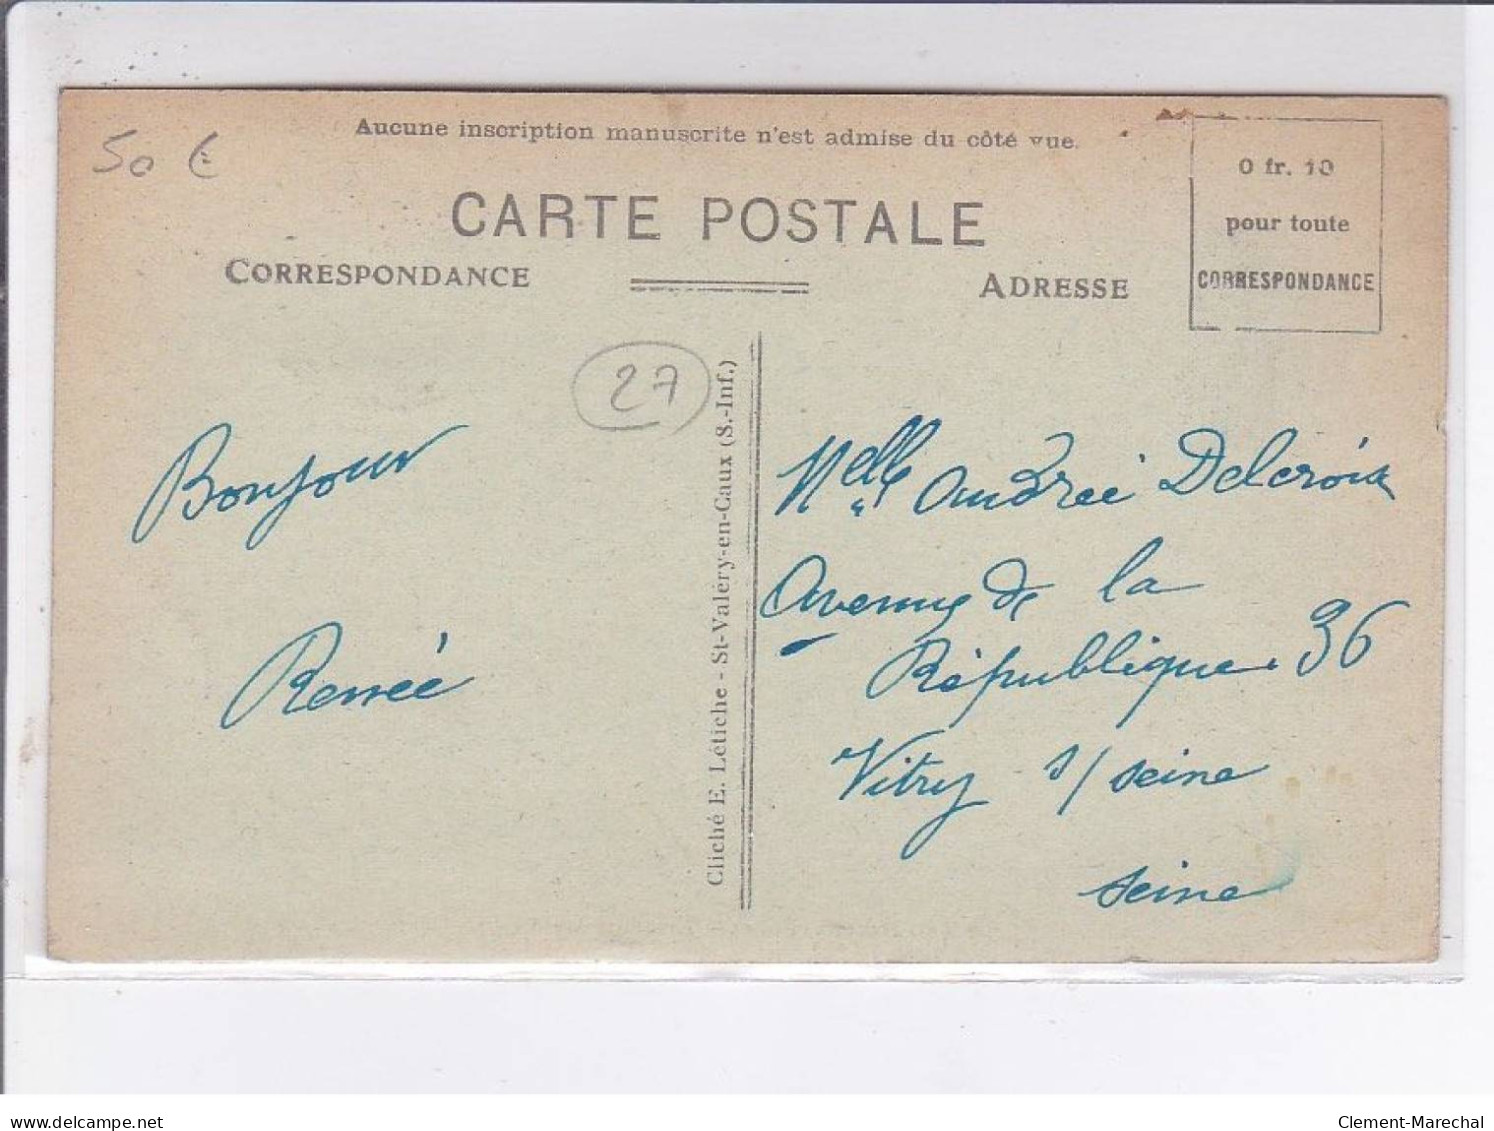 Aucune inscription manuscrite n'est admise du côté vue.
50 €
CARTE POSTALE
CORRESPONDANCE
ADRESSE
0 fr. 10
pour toute
CORRESPONDANCE
27
Bonjour
Renée
Cliché E. Létiche - St-Valéry-en-Caux (S.-Inf.)
Melle Andrée Delcroix
Avenue de la
République 36
Vitry s/ seine
seine
www.delcampe.net
Clement-Marechal